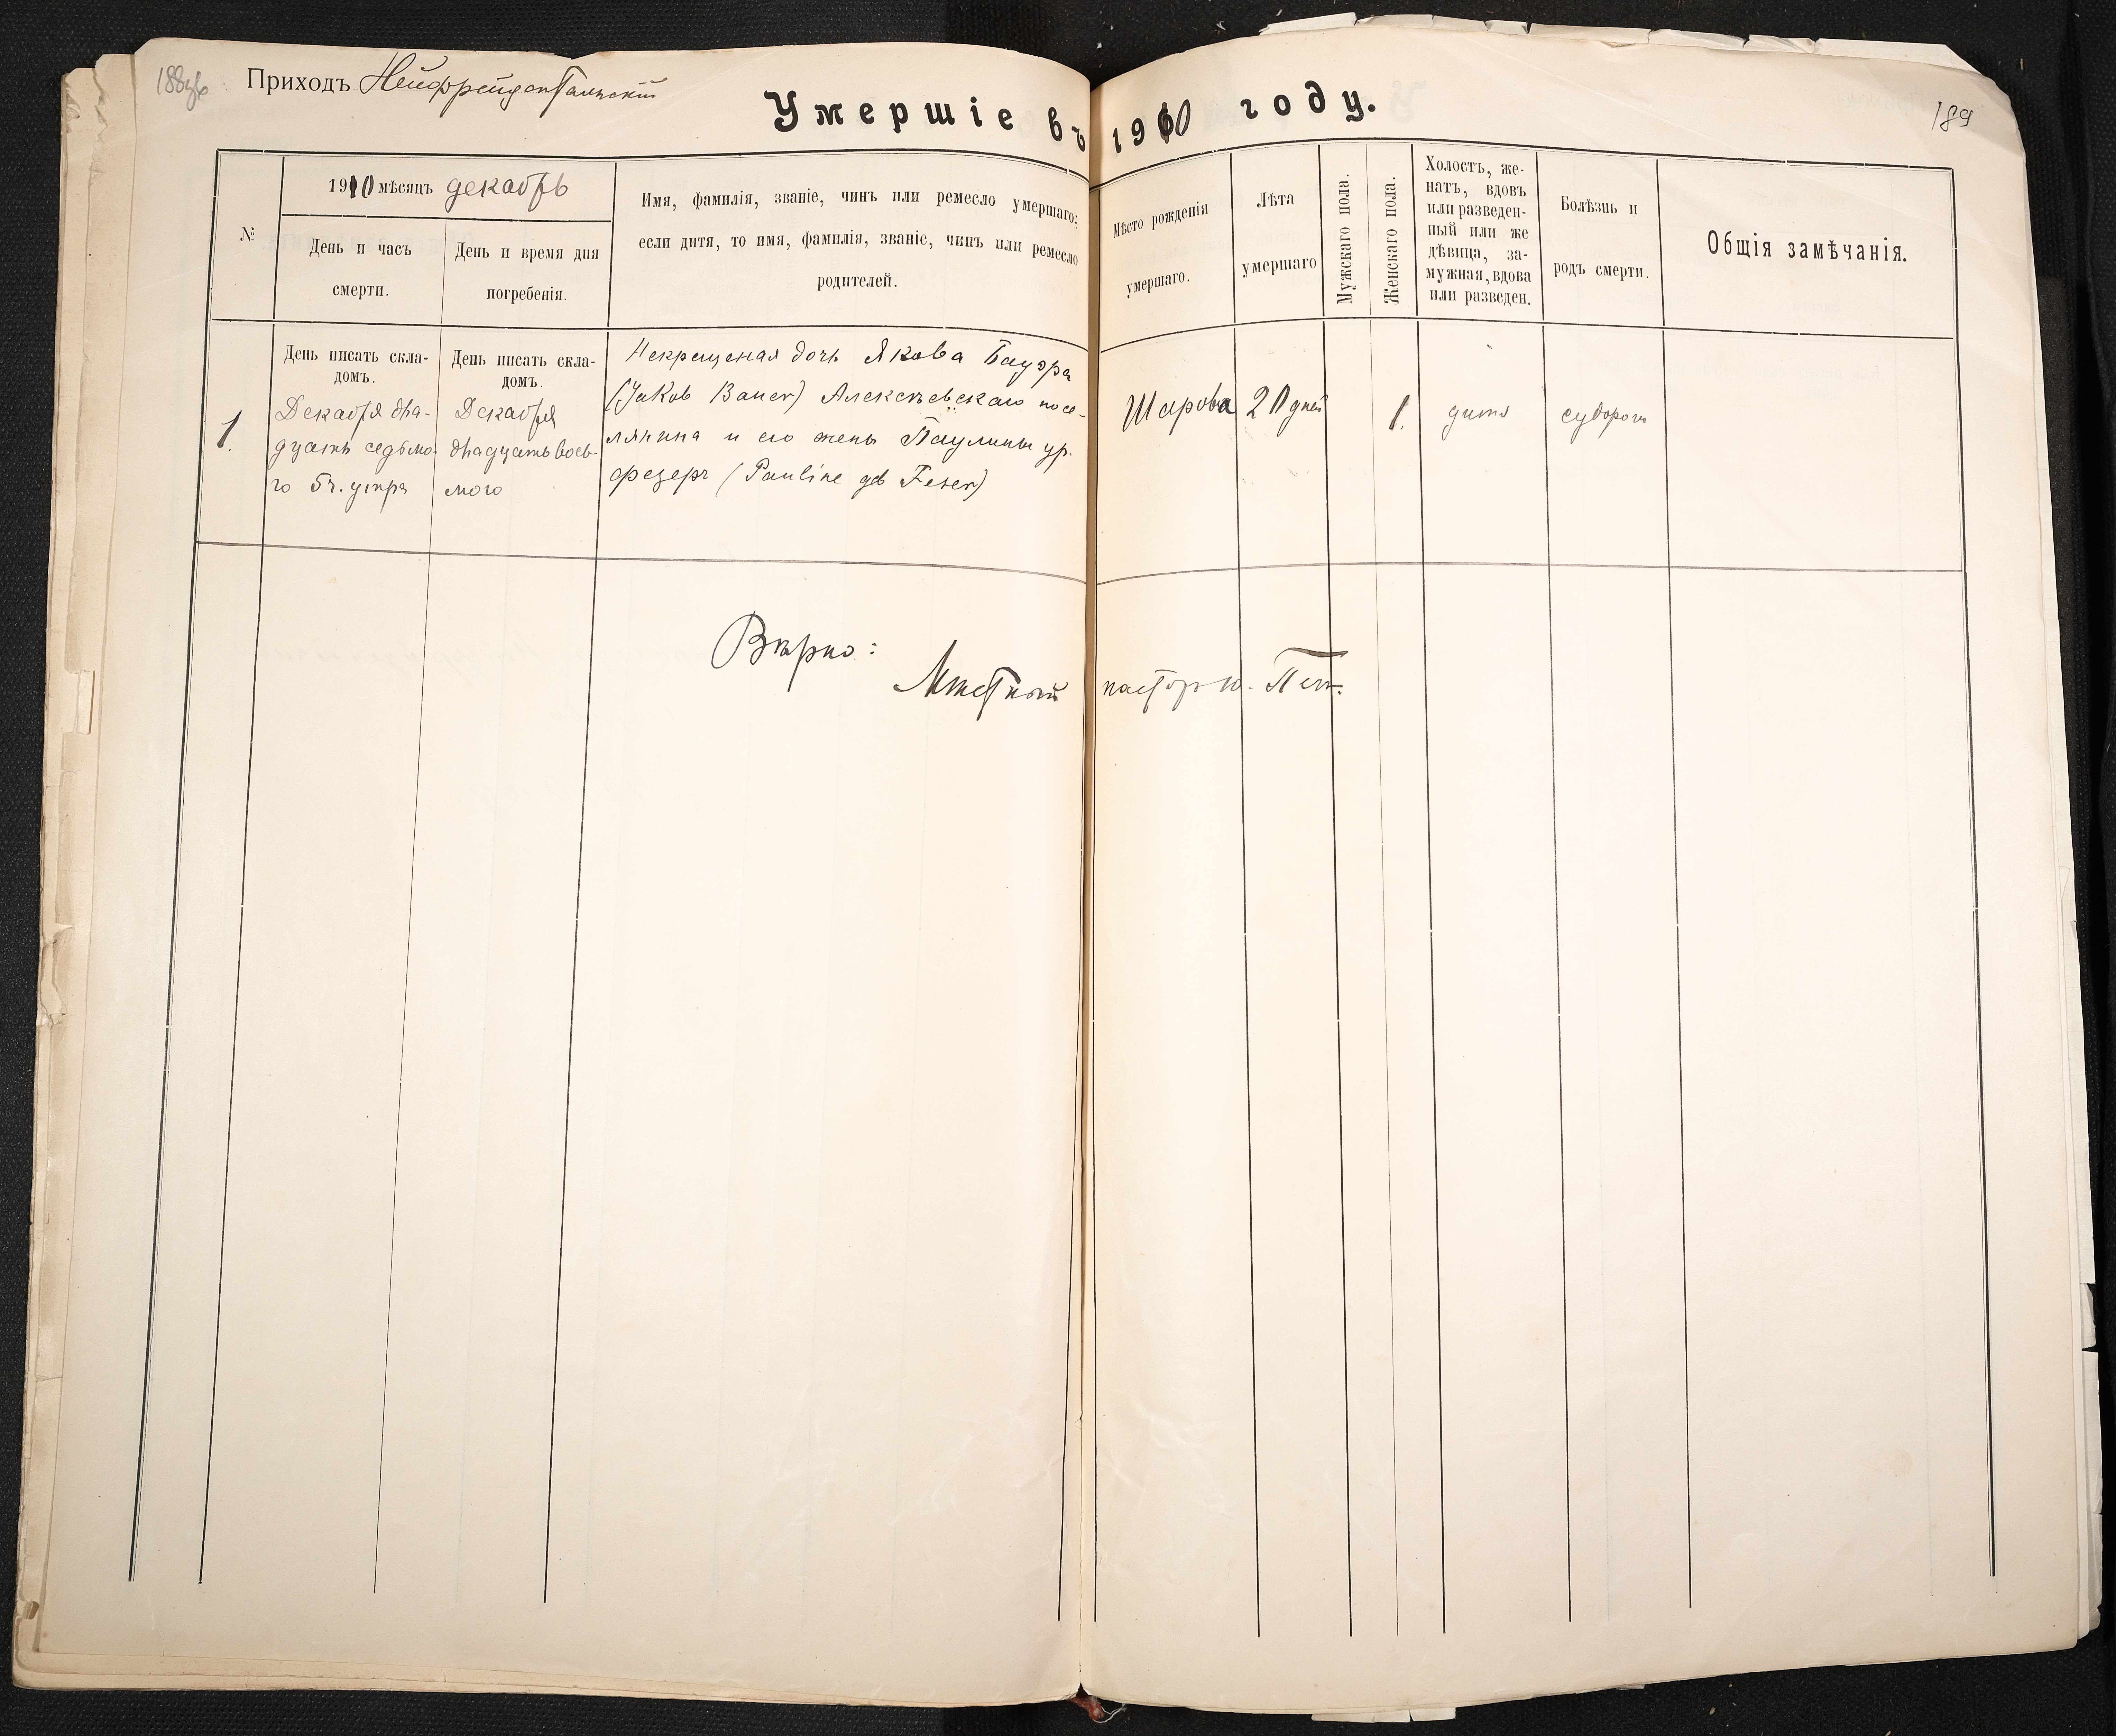 188об
Приходъ Нейфрейдентальскій
Умершіе въ 1910 году.
189
№
1910 мѣсяцъ декабрь
День и часъ
смерти.
День и время дня
погребенія.
Имя, фамилія, званіе, чинъ или ремесло умершаго;
если дитя, то имя, фамилія, званіе, чинъ или ремесло
родителей.
Мѣсто рожденія
умершаго.
Лѣта
умершаго
Мужскаго пола.
Женскаго пола.
Холостъ, же-
натъ, вдовъ
или разведен-
ный или же
дѣвица, за-
мужная, вдова
или разведен.
Болѣзнь и
родъ смерти.
Общія замѣчанія.
1.
День писать скла-
домъ.
Декабря два-
дцать седьмо-
го 5 ч. утра
День писать скла-
домъ.
Декабря
двадцать вось-
мого
Некрещеная дочь Якова Бауэра
(Jakob Bauer) Алексѣевскаго посе-
лянина и его жены Паулины ур.
Фезеръ (Pauline geb Feser)
Шарова
20 дней
1.
дитя
судороги
Вѣрно:
Мѣстный пасторъ